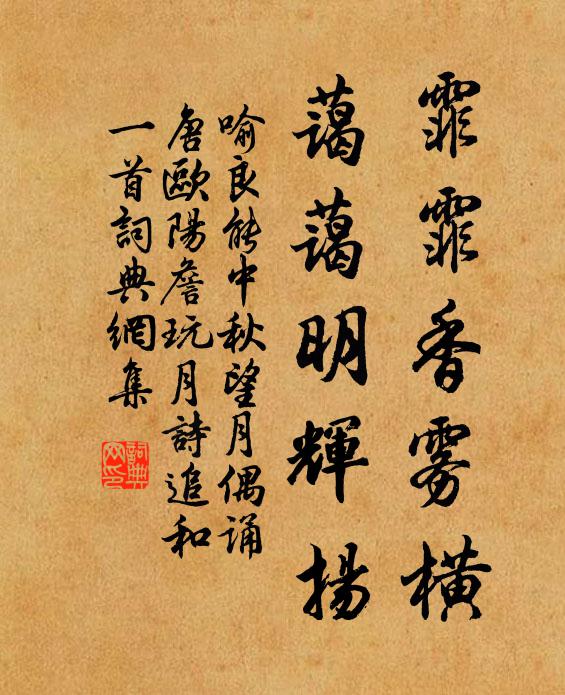 霏霏香雾橫
藹藹明輝揚
喻良能中秋望月偶誦
唐歐陽詹玩月詩追和
一首詞典網集
詞典
网印